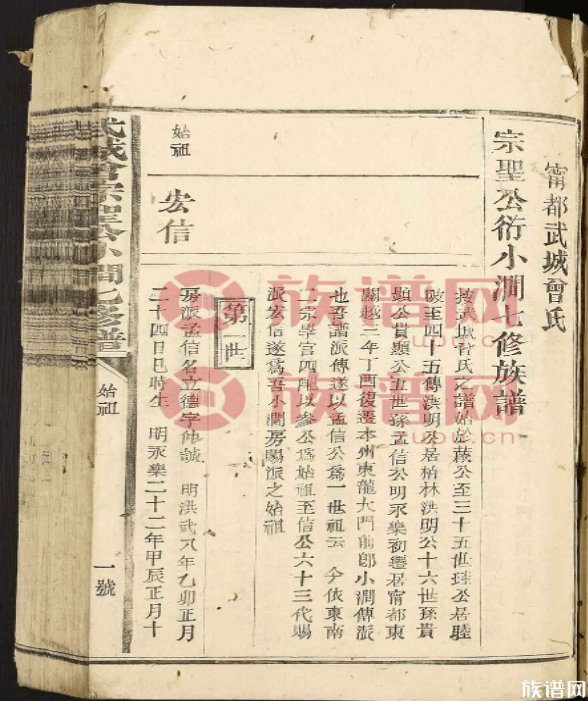 甯都武城曾氏
宗聖公衍小澗七修族譜
按武城曾氏之譜始於蒧公至三十五世珪公居睦
陂至四十五傳洪明公居柏林洪明公十六世孫貴
顯公貢顯公五世孫孟信公明永樂初遷居甯都東
關越三年丁酉復遷本州東龍大門前郎小澗傳派
也吾譜派傳遂以孟信公為一世祖云 今依東南
二宗學宫四雕以參公為始祖至信公六十三代賜
派宏信遂爲吾小澗房賜派之始祖
始祖 宏信
第一世
房派孟信名立德字仲誠 明洪武八年乙卯正月
二十四日巳時生 明永樂二十二年甲辰正月十
武城曾宗聖公小澗七修譜
始祖
一號
族谱网
族谱网
族谱网